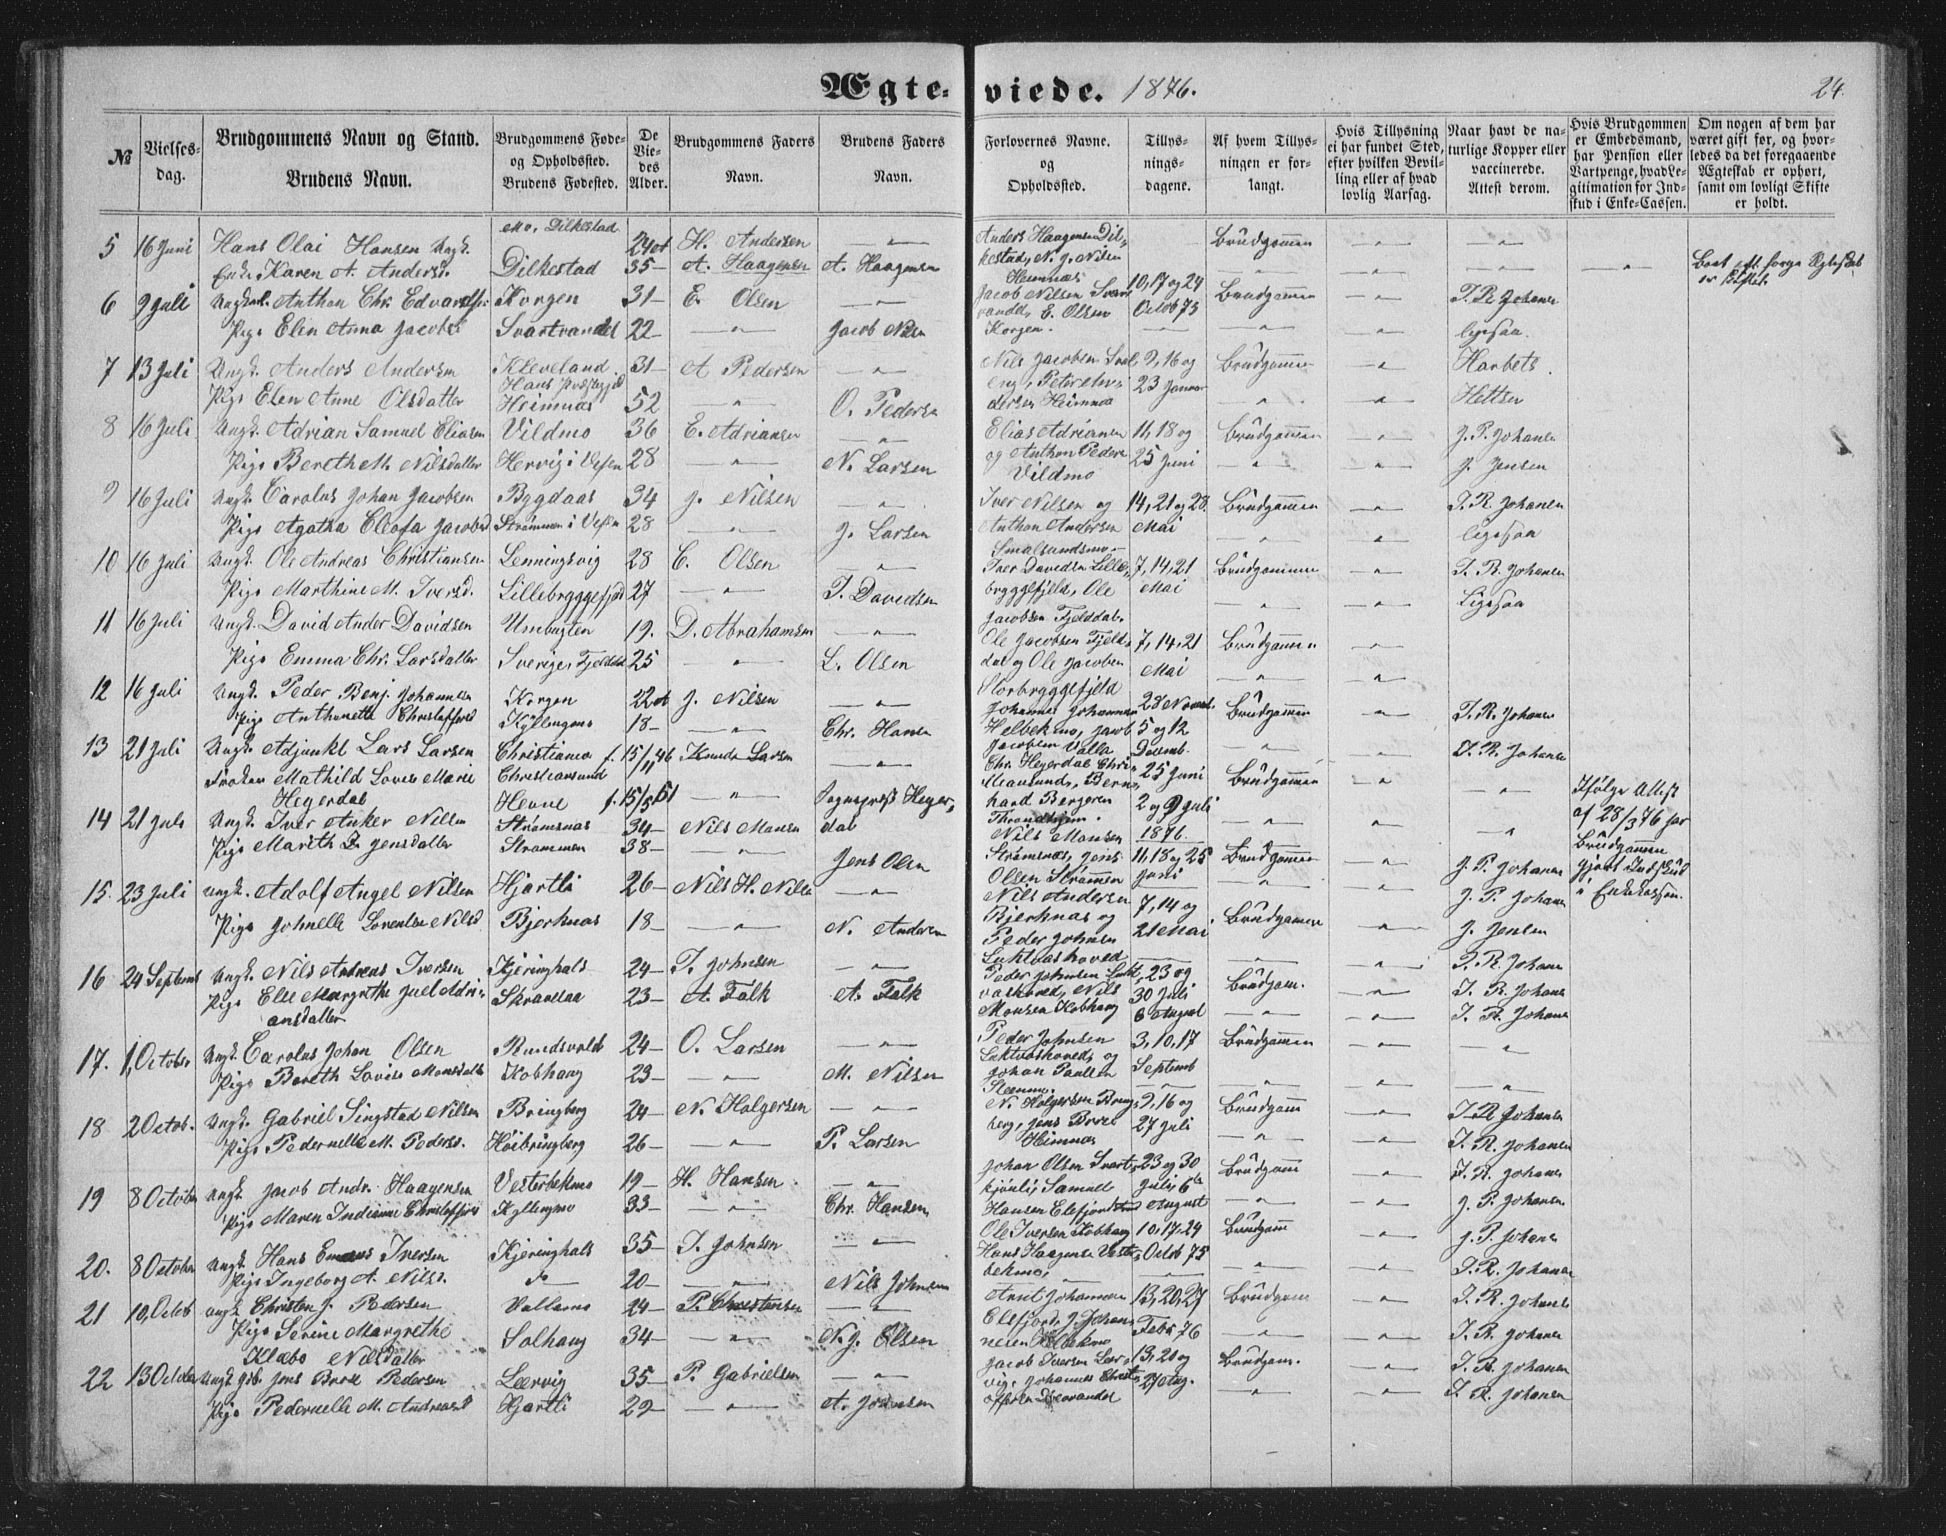 Ægte- viede. 1876. 24.
№
Vielses-dag.
Brudgommens Navn og Stand.
Brudens Navn.
Brudgommens Føde- og Opholdssted.
Brudens Fødested.
De Vie-des Alder.
Brudgommens Faders Navn.
Brudens Faders Navn.
Forlovernes Navne. og Opholdssted.
Tillys-nings-dagene.
Af hvem Tillys-ningen er for-langt.
Hvis Tillysning ei har fundet Sted, efter hvilken Bevil-ling eller af hvad lovlig Aarsag.
Naar havt de na-turlige Kopper eller vaccinerede. Attest derom.
Hvis Brudgommen er Embedsmand, har Pension eller Vartpenge, hvad Le-gitimation for Ind-skud i Enke-Cassen.
Om nogen af dem har været gift før, og hvor-ledes da det foregaaende Ægteskab er ophørt, samt om lovligt Skifte er holdt.
5 16 Juni Hans Olai Hansen Ungk. Mo, Dilkestad 24 H. Andersen — " — Anders Haagensen Dil- Brudgommen — " — — " —
Enke Karen A. Andersd. Dilkestad 35 — A. Haagensen A. Haagensen kestad, N. J. Nilsen
Heimnæs
6 9 Juli Ungkarl Anthon Chr. Edvards Korgen 31 — E. Olsen — " — Jacob Nilsen Svart- 10, 17 og 24 Brudgommen — " — J. R. Johans
Pige Elen Anna Jacobs Svartvandet 22 — — " — Jacob Nilsen vandet, E. Olsen Octob 75 ligesaa.
Korgen.
7 13 Juli Ungk. Anders Andersen Kleveland 31 — A. Pedersen — " — Nils Jacobsen 9, 16 og Brudgommen — " — Harbets
Hans Præstegjeld
Pige Elen Anne Olsdatter Heimnæs 52 — " — O. Pedersen Peter An- 23 Januar Heltzen
dersen Heimnæs
8 16 Juli Ungk. Adrian Samuel Eliasen Vildmo 36 E. Adriansen — " — Elias Adriansen 11, 18 og Brudgommen — " — J. P. Johansen
Pige Bereth M. Nilsdatter Hervig i Vefsen 28 — " — N. Larsen og Anthon Peder 25 Juni J. Jensen
Vildmo
9 16 Juli Ungk. Carolus Johan Jacobsen Bygdaas 34 J. Nilsen — " — Iver Nilsen og 14, 21 og 28 Brudgommen — " — J. R. Johansen
Pige Agatha Eleofa Jacobsd Strømmen i Vefsn 28 — " — J. Larsen Anthon Andersen Mai ligesaa
Smalsundsmo —
10 16 Juli Ungk. Ole Andreas Christiansen Lenningsvig 28 C. Olsen — " — Iver Davidsen Lille- 7, 14, 21 Brudgommen — " — J. R. Johansen
Pige Marthine M. Iversd. Lillebryggefjeld 27 — " — I. Davidsen bryggfjeld, Ole Mai Ligesaa
Jacobsen Fjelddal.
11 16 Juli Ungk. David Ander Davidsen Umbugten 19. D. Abrahamsen — " — Ole Jacobsen Fjeld- 7, 14, 21 Brudgommen — " —
Pige Emma Chr. Larsdatter Sverige, Fjelddal 25 — " — L. Olsen dal og Ole Jacobsen Mai
Storbryggfjeld
12 16 Juli Ungk. Peder Benj. Johannesen Korgen 22 J. Nilsen — " — Johannes Johannesen 28 Novemb. Brudgommen — " — J. R. Johansen
Pige Anthonette Christoffersd Kyllingmo 18 — — " — Chr. Hansen Helbekmo, Jacob 5 og 12 J. R. Johansen
Jacobsen Valla Decemb.
13 21 Juli Ungk. Adjunkt Lars Larsen Christiania f. 15/11 46 Knud Larsen — " — Chr. Hegerdal Chri- 25 Juni Brudgommen — " — — " — Ifølge Attest
Frøken Mathild Lovise Marie Christiansund stiansund, Bern- af 28/3 76 har
Hegerdal Hevne f. 15/8 51 — " — Sognepræst Heger- hard Bergersen 2 og 9 Juli Brudgommen
dal Throndhjem. 1876. gjort Indskud
i Enkekassen.
14 21 Juli Ungk. Iver Anker Nilsen Strømsnæs 34 — Nils Monsen Nils Monsen 11, 18 og 25 Brudgommen J. P. Johansen
Pige Marith Jensdatter Strømmen 38 — — " — Jens Olsen Strømsnæs, Jens Juni J. P. Johansen
Olsen Strømmen
15. 23 Juli Ungk. Adolf Angel Nilsen Hjartli 26 — Nils H. Nilsen — " — Nils Andersen 7, 14 og Brudgommen — " — J. Jensen
Pige Johnelle Lorentse Nilsd Bjerknæs 18 — — " — N. Andersen Bjerknæs og 21 Mai J. R. Johansen
Peder Johnsen
Luktvashoved
16 24 Septemb Ungk. Nils Andreas Iversen Kjeringhals 24 — I. Johnsen — " — Peder Johnsen Lukt- 23 og Brudgom. — " — J. R. Johansen
Pige Else Margrethe Juel Adri- Skrandaa 23 — A. Falk A. Falk vashoved, Nils 30 Juli J. R. Johansen
ansdatter Monsen Kobhaug 6 August
17. 1, October Ungk. Carolus Johan Olsen Rundsvold 24 — O. Larsen — " — Peder Johnsen 3, 10, 17 Brudgommen — " — — " —
Pige Bereth Lovise Monsdatter Kobhaug 23 — — " — M. Nilsen Luktvashoved, og Septemb — " —
Johan Paulsen
18 2 Octob. Ungk. Gabriel Singstad Nilsen Bringberg 24 — N. Holgersen — " — N. Holgersen Bring- 9, 16 og Brudgom — " — J. R. Johansen
Pige Pedernelle M. Pedersd. Høibringberg 26 — — " — P. Larsen berg, Jens Bore 27 Juli J. R. Johansen
Heimnæs
19 8 October Ungk. Jacob Andr. Haagensen Vesterbekmo 19 — H. Hansen — " — Johan Olsen Svart- 23 og 30 Brudgom — " — J. R. Johansen
Pige Maren Indianne Christoffersd Kyllingmo 33 — — " — Chr. Hansen Samuel Juli, 6te J. P. Johansen
Hansen Elsfjord August
20. 8 October Ungk. Hans Iversen Kjeringhals 35 — I. Johnsen — " — Ole Iversen Kobhaug 10, 17, 24 Brudgom J. P. Johansen
Pige Ingeborg A. Nilsd. — " — 20 — — " — Nils Johnsen Hans Haagensen Vester- Octob 75 J. R. Johansen
bekmo,
21 10, Octob Ungk Christen J. Pedersen Vallamo 24 — P. Christensen — " — Arnt Johansen 13, 20, 27 Brudgom — " — J. R. Johansen
Pige Serine Margrethe Solhaug 34 — — " — N. J. Olsen Elsfjord, J. Johan- Febr 76 J. R. Johansen
Klæbo Nilsdatter
22 13 October Ungk gsb. Jens Bore Pedersen Leervig 35 — P. Gabrielsen — " — Jacob Iversen Leer- 13, 20 og Brudgom. — " — J. R. Johansen
Pige Pedernelle M. Andreasd Hjartli 29 — — " — A. Johnsen vig, Johannes Christ- 27 Aug. — " — J. R. Johansen